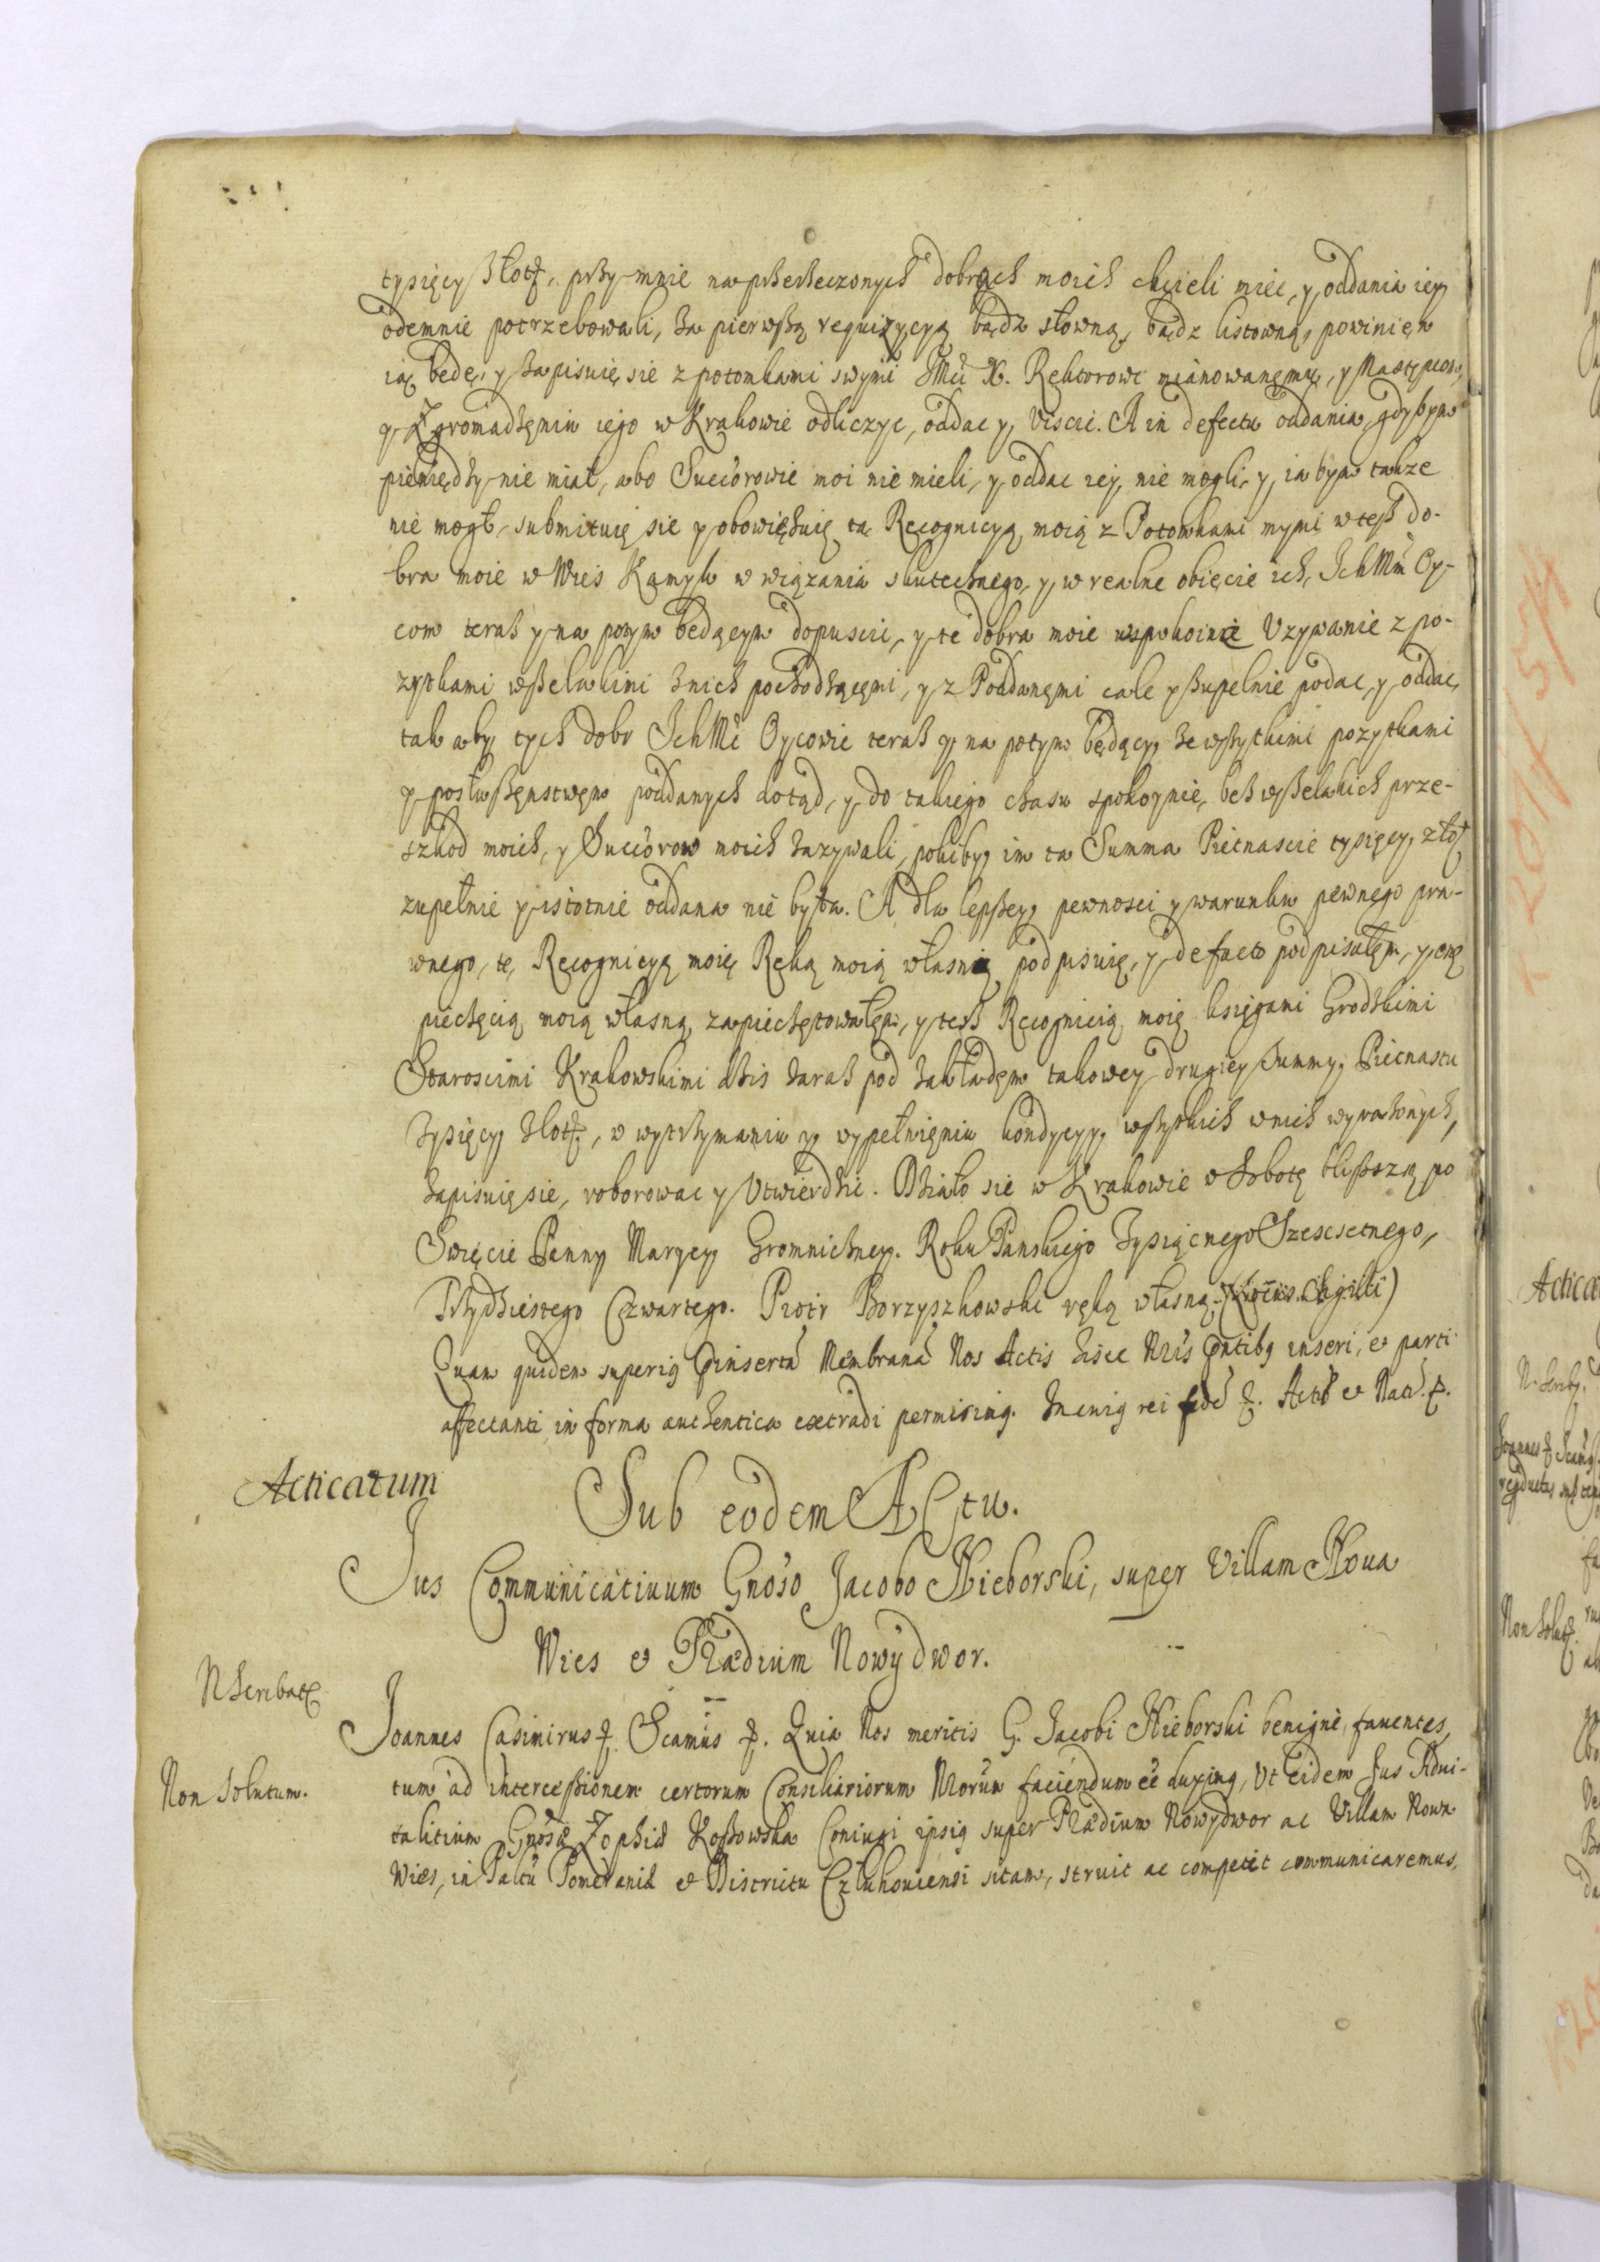 tysięcy złot. przy mnie na przerzeczonych dobrach moich chcieli miec, y oddania iey
odemnie potrzebowali, za pierwszą requizycyą bądz słowną, bądz listowną, powinięn
ią będę, y zapisuię się z potomkami swymi JMci X. Rektorowi mianowanęmu, y Nastepcom,
y Zgromadzęniu iego w Krakowie odliczyc, oddac y, Uiscic. A in defectu oddania, gdybym
pięniędzy nie miał, abo Succorowie moi nie mieli, y oddac iey, nie mogli, y ia bym takze
nie mogł, submituię się y obowięzuię tą Recognicyą moią z Potomkami mymi w tesz do-
bra moie w Wies Kamyk w wiązania skutecznego, y, w realne obięcie ich, IchMm Oy-
com teraz y na potym będącym dopuscic, y te dobra moie w spokoinie Uzywanie z po-
zytkami wszelakimi z nich pochodzącęmi, y z Poddanęmi cale y zupelnie podac, y oddac,
tak aby tych dobr IchMc Oycowie teraz y na potym będący, ze wszytkimi pozytkami
y posłuszęnstwęm poddanych dotąd, y do takiego czasu spokoynie, bez wszelakich prze-
szkod moich, y Succorow moich zazywali, pokiby, im ta Summa Pietnascie tysięcy, złot
zupełnie y istotnie oddana nie była. A dla lepszey, pewnosci y warunku pewnego pra-
wnego, tę, Recognicyą moię Ręką moią własną podpisuię, y, de facto podpisałęm, y,
pieczęcią moią własną, zapieczętowałęm, y tesz Recognicią moię księgami Grodzkimi
Staroscimi Krakowskimi dzis zaraz pod zakładęm takowey drugiey Summy, Piecnastu
Tysięcy złot, o wytrzymaniu y, wypełnięniu kondycyy, wszytkich w nich wyrazonych,
zapisuię się, roborowac y Utwierdzic. Działo się w Krakowie w Sobotę bliszszą po
Swięcie Panny Maryey Gromniczney. Roku Panskiego Tysiącnego Szescsetnego,
Trzydziestego Czwartego. Piotr Borzyszkowski ręką własną. (Locus Sigilli)
Quam quidem superiq insertā Membranā Nos Actis hisce Nris pntibq inseri, et parti
affectanti in forma authentica extradi permisimq. In cuiq rei fidē &. Act et Dat. &.
Acticatum
Sub eodem Actu.
Jus Communicativum Gnoso Jacobo Nieborski, super Villam Nova
Wies et Prædium Nowy dwor.
N Scribatr
Joannes Casimirus & Scamus &. Quia Nos meritis G. Jacobi Nieborski benigne, faventes,
Non Solutum.
tum ad intercessionem certorum Consiliariorum Nrorum faciendum eē duximq, Ut Eidem Jus Advi-
talitium Gnosæ Zophiæ Kossowska Coniugi ipsiq super Prædium Nowydwor ac Villam Nowa
Wies, in Paltu Pomeraniæ et Districtu Czluhoviensi sitam, struit ac competit communicaremus,